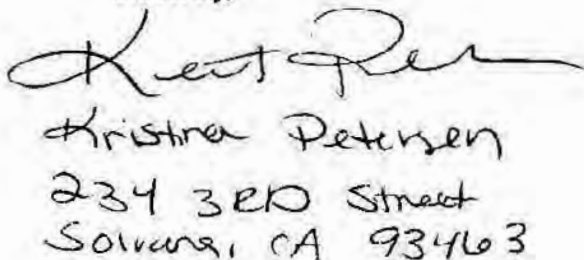 Kristina Petersen
234 3RD Street
Solvang, CA 93463